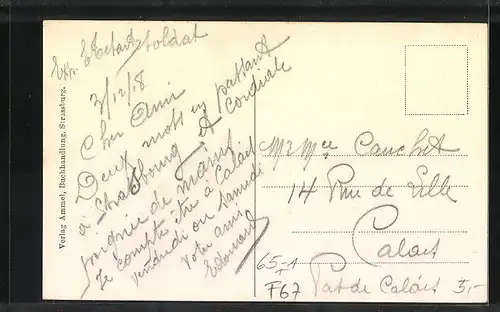 Exp. E. Retaux soldat
3/12/18
Cher Ami
Deux mots en passant
à Strasbourg et cordiale
poignée de mains
Je compte être à Calais
vendredi ou Samedi
votre ami
Edouard
Verlag Ammel, Buchhandlung, Strassburg.
Mr & Mme Cauchet
14 Rue de Lille
Calais
Pas de Calais
65-1
F67
5,-